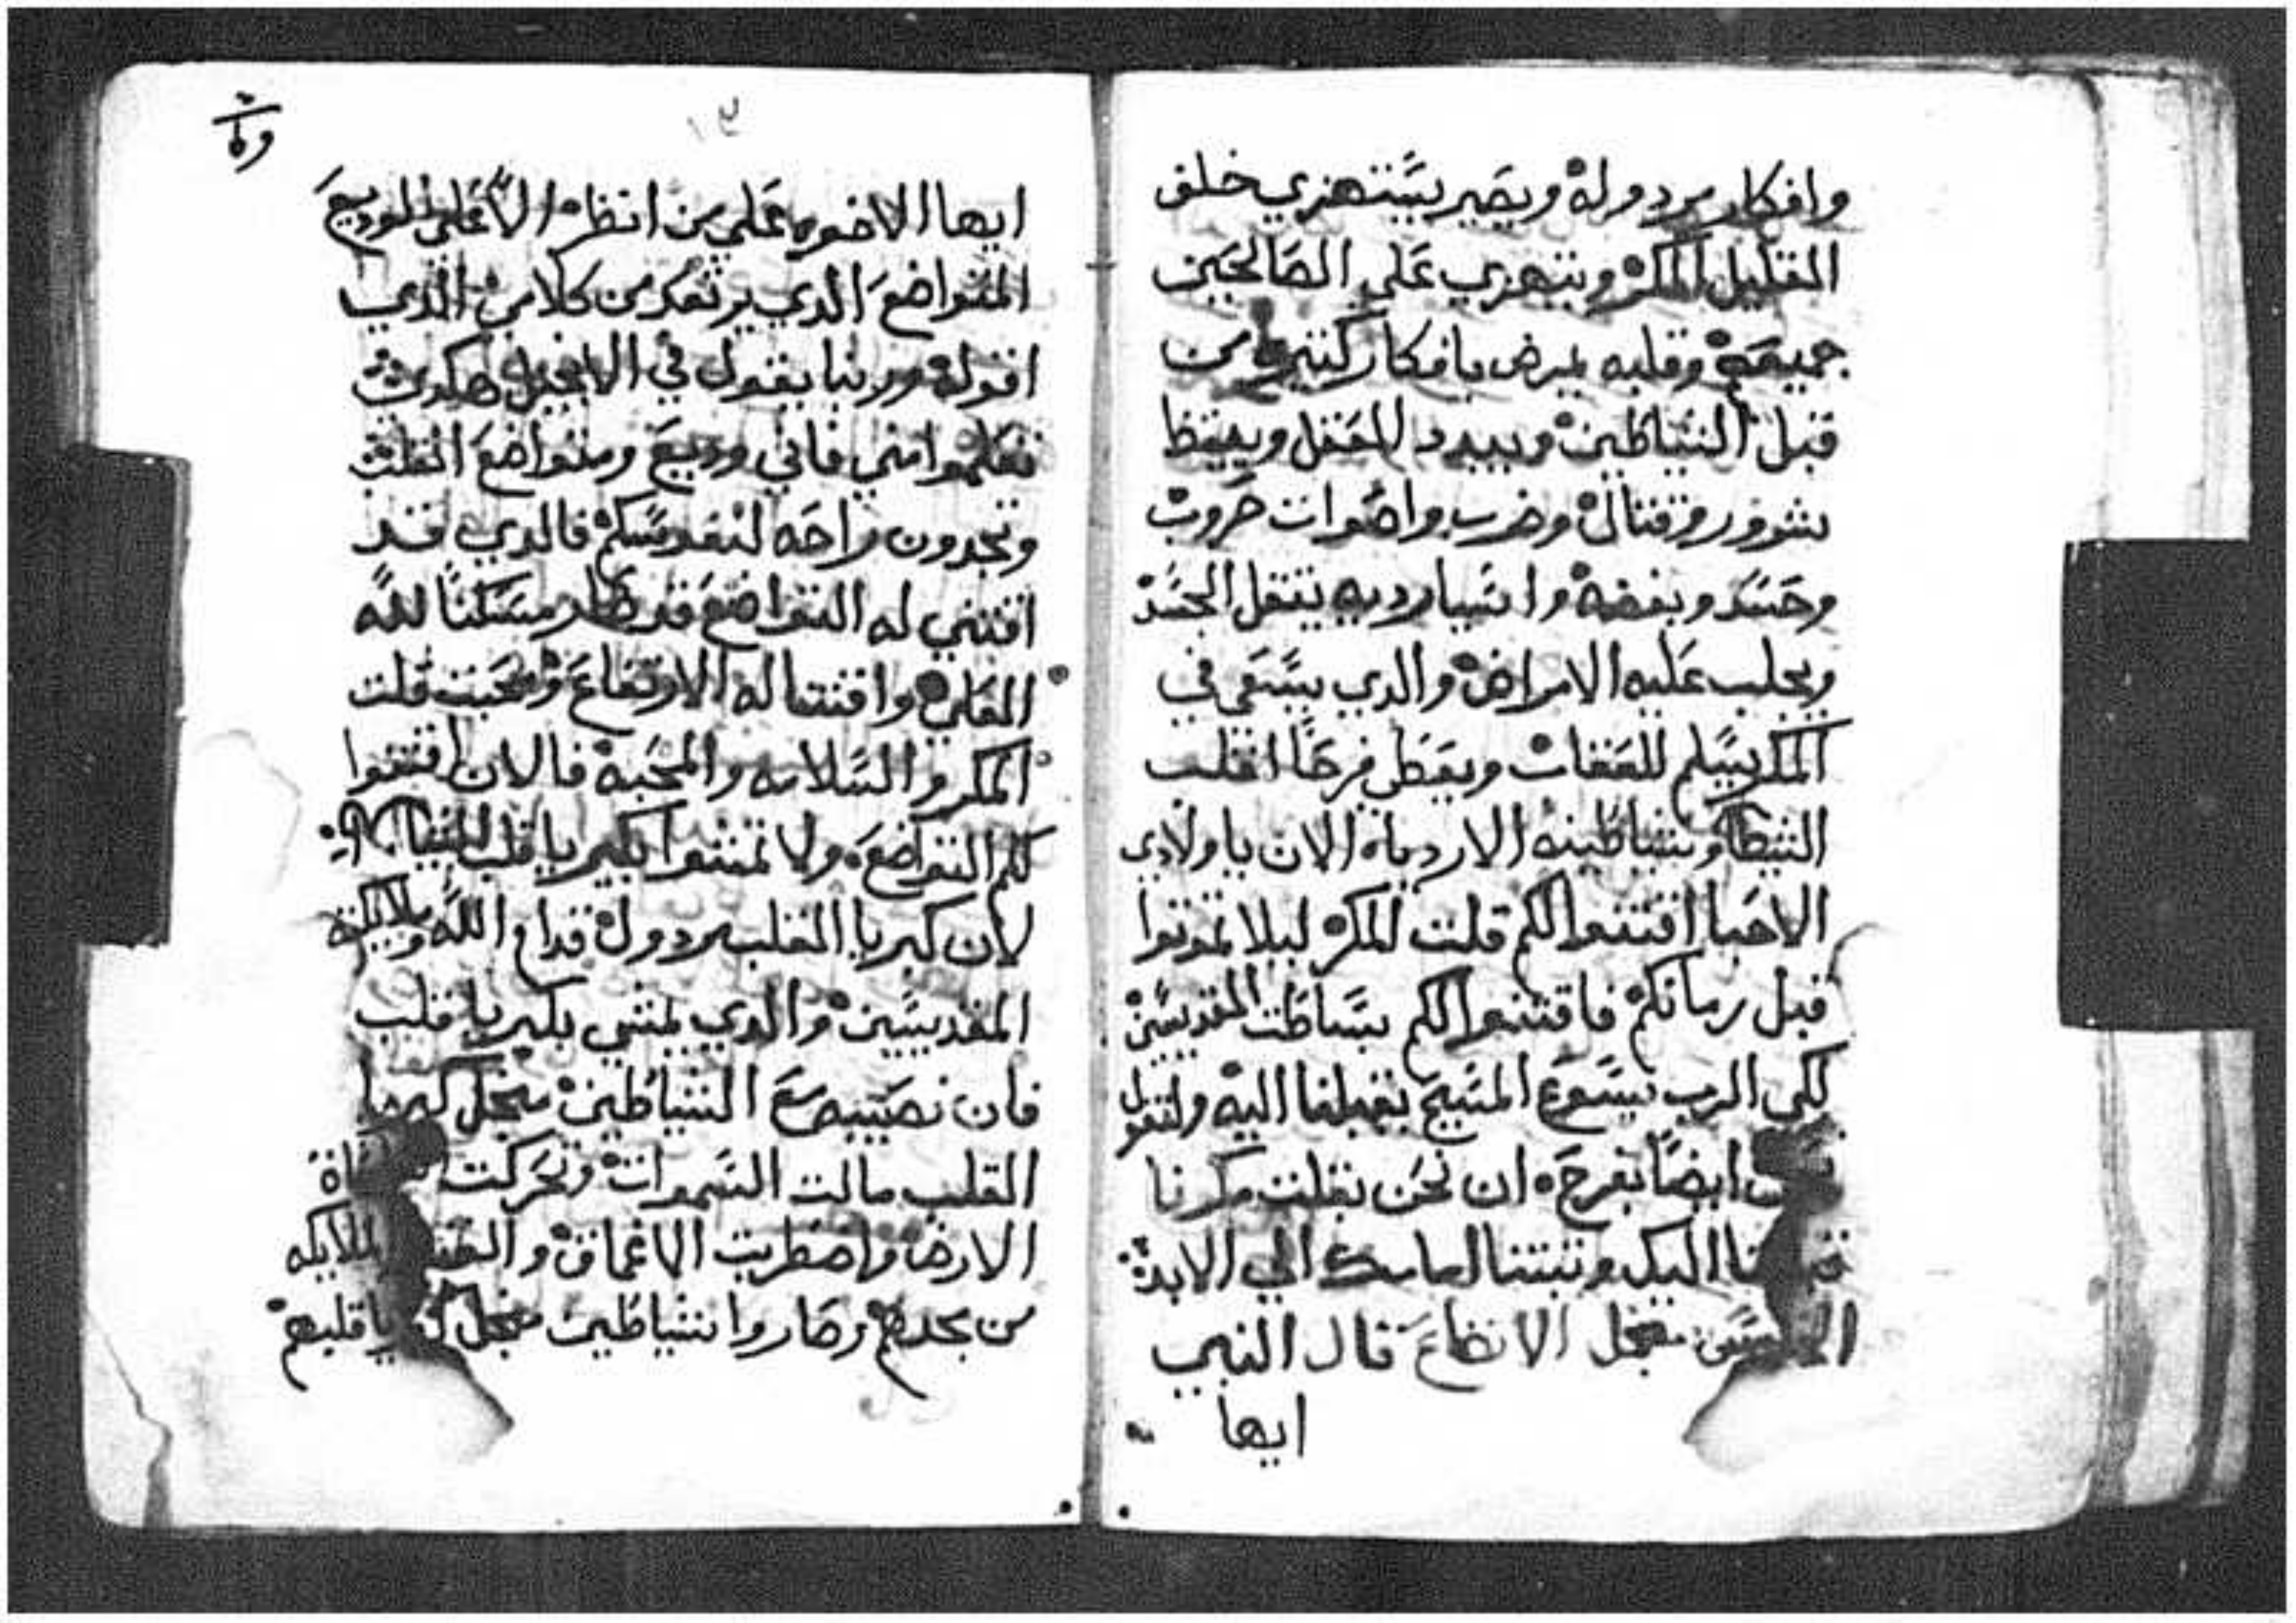 وافكار مردوله ويصير يستهزي خلف
القليل المكر ويتهزي علي الصالحين
جميعهم وقلبه يمرض بافكار كثيره من
قبل الشياطين ويبدد للعقل ويعيظ
بشرور وقتال وضرب واصوات حروب
وحسد وبغضه واشيا رديه يتقل الجسد
ويجلب عليه الامراض والدي يسعي في
المكر يسلم للعفات ويعطل فرحا لقلب
الشيطان وشياطينه الارديا الان ياولادي
الاحبا اقتنوا لكم قلت المكر ليلا تموتوا
قبل زمانكم فاقتنوا لكم بساطت القديسين
لكي الرب يسوع المسيح يقبلنا اليه ولنقول
ايضا بفرح ان نحن بقلت مكرنا
اليك وتبتنا الي الابد
من اجل الاتضاع قال النبي
ايها
ايها الاخوه علي من انظر الا علي الوديع
المتواضع الدي يرتعد من كلامي الدي
اقوله وربنا يقول في الانجيل هكدي
تعلموا مني فاني وديع ومتواضع القلب
وتجدون راحه لنفوسكم فالدي قد
اقتني له التواضع قد صار مسكنا لله
العلي واقتنا له الارتفاع ومحبت قلت
المكر والسلامه والمحبه فالان اقتنوا
لكم التواضع ولا تمشوا بكبريا قلب
لان كبريا القلب مردول قدام الله وملايكته
القديسين والدي يمشي بكبريا قلب
فان نصيبه مع الشياطين من اجل كبريا
القلب مالت السموات وتحركت
الارض واضطربت الاعماق الملايكه
من مجدهم وصاروا شياطين من اجل كبريا قلبهم